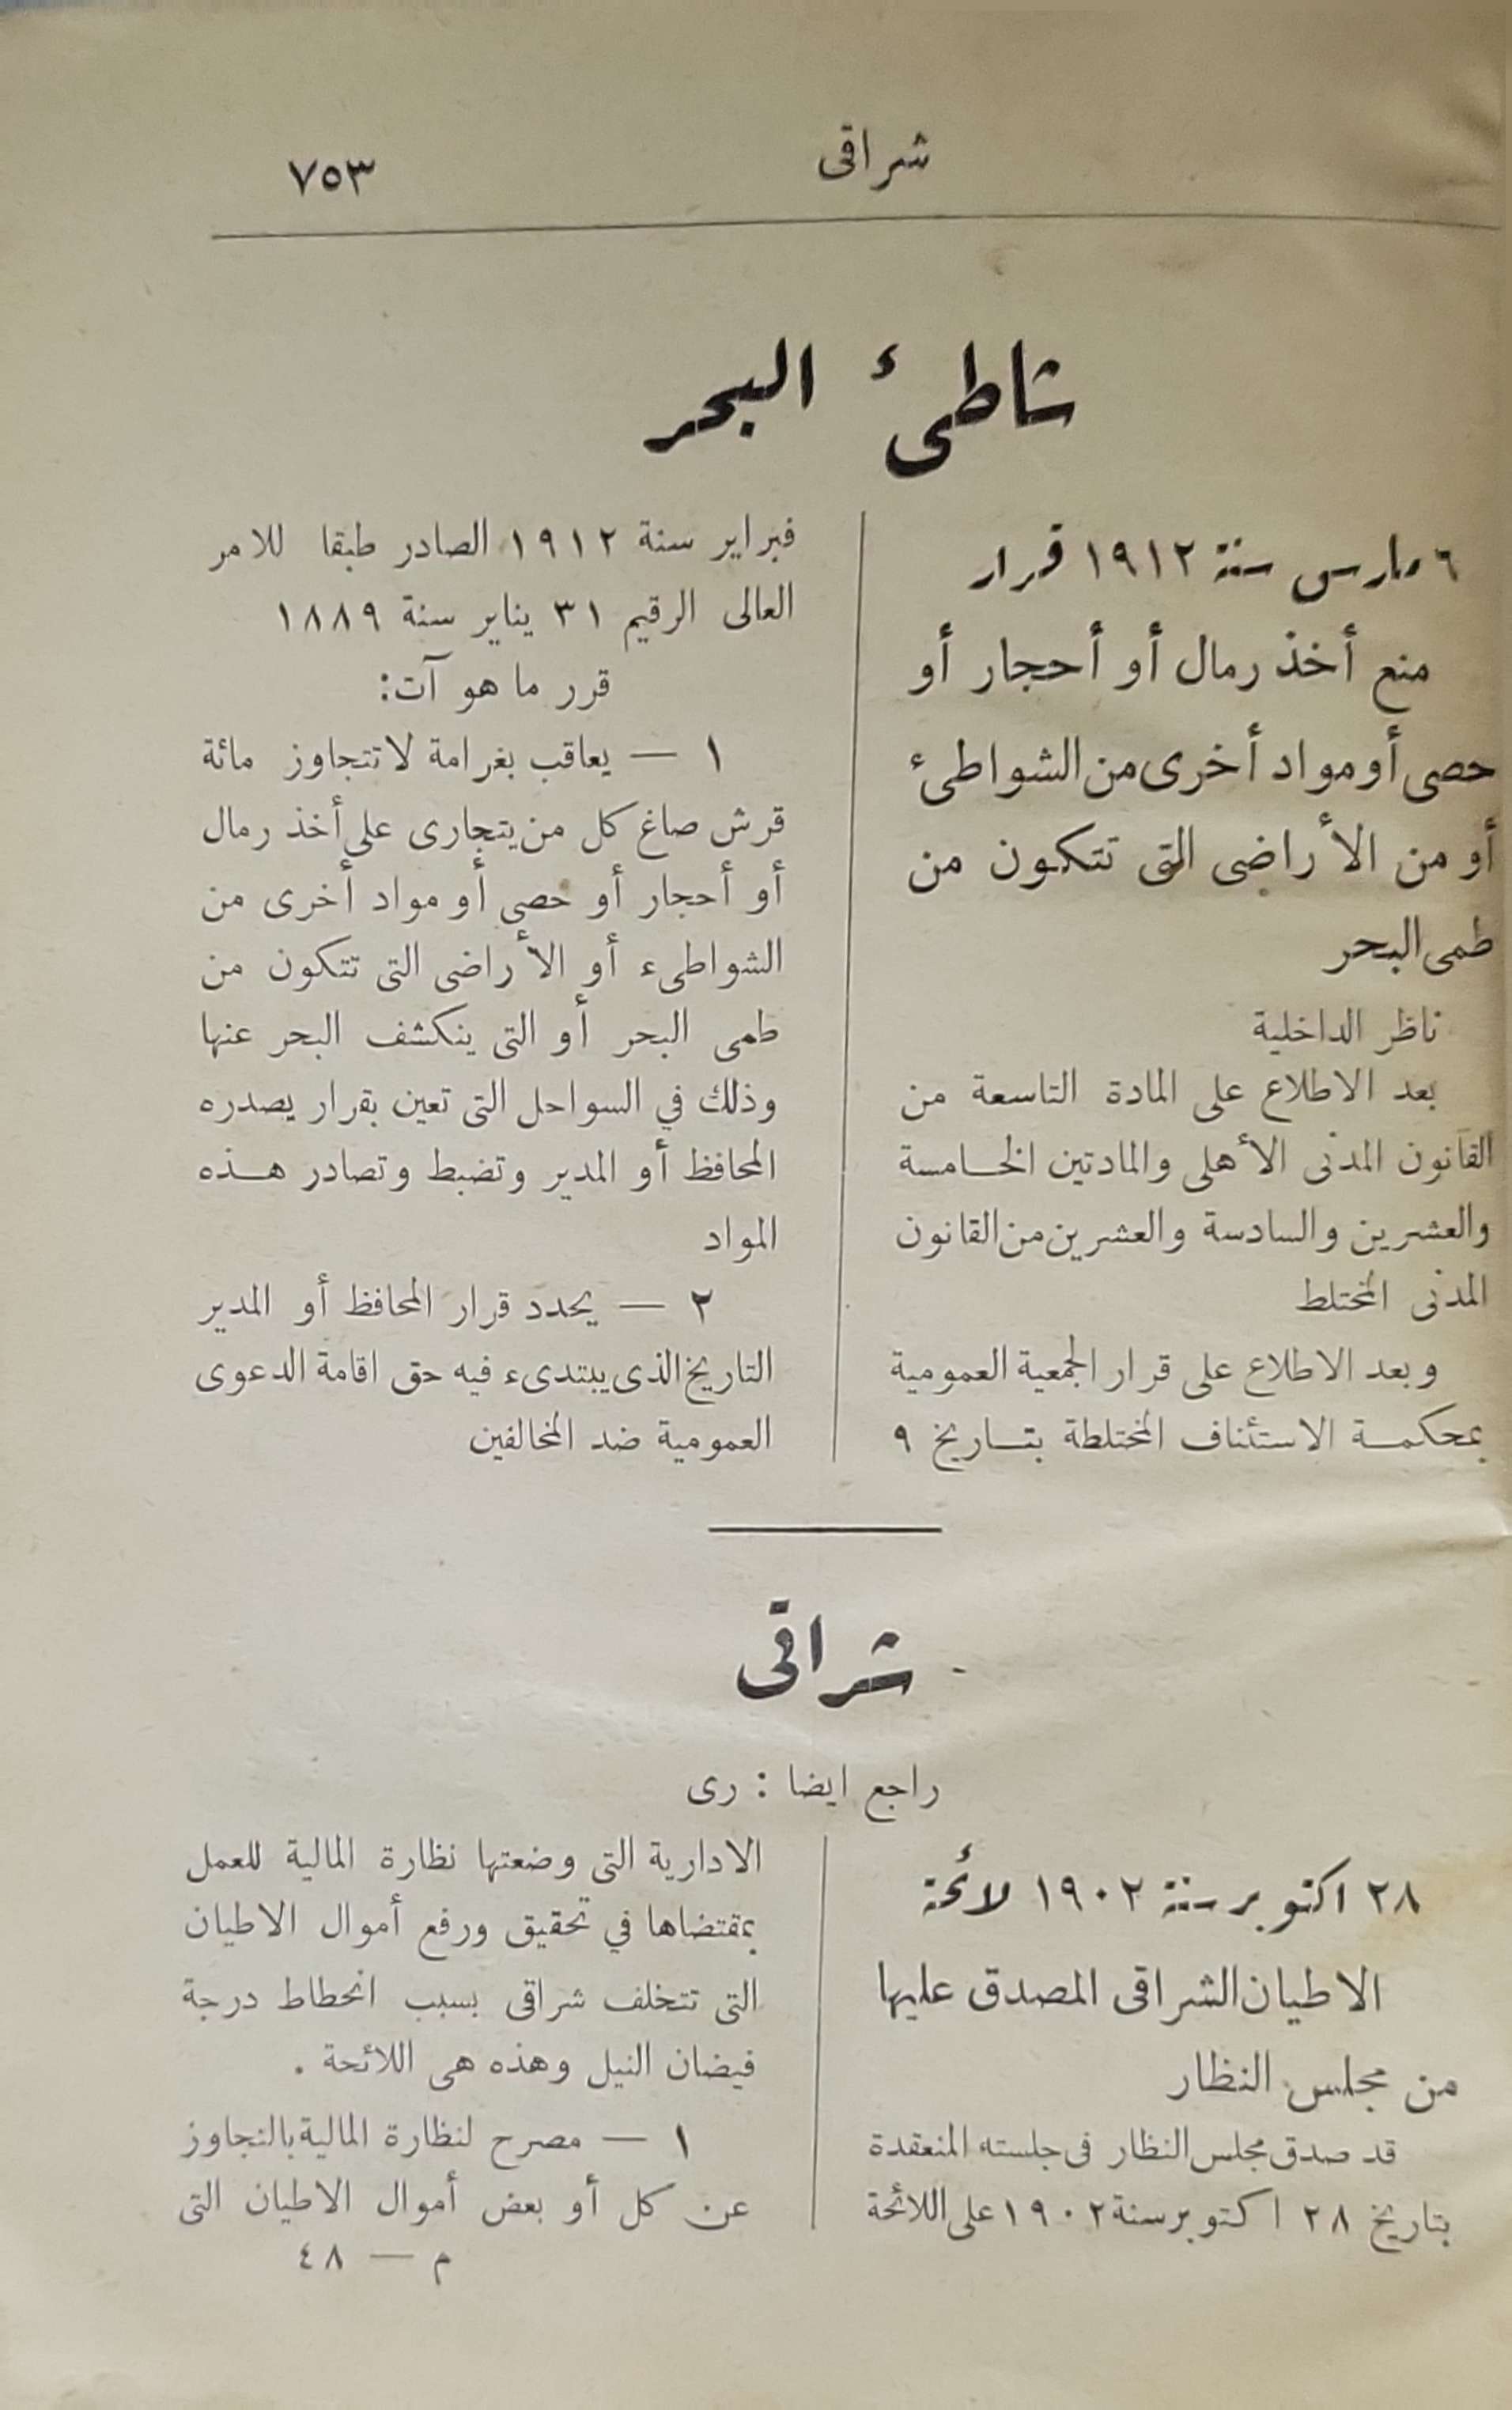 شراقى
٧٥٣
شاطئ البحر
٦ مارس سنة ١٩١٢ قرار
منع أخذ رمال أو أحجار أو
حصى أو مواد أخرى من الشواطئ
أو من الأراضى التى تتكون من
طمى البحر
ناظر الداخلية
بعد الاطلاع على المادة التاسعة من
القانون المدنى الأهلى والمادتين الخامسة
والعشرين والسادسة والعشرين من القانون
المدنى المختلط
وبعد الاطلاع على قرار الجمعية العمومية
بمحكمة الاستئناف المختلطة بتاريخ ٩
فبراير سنة ١٩١٢ الصادر طبقا للامر
العالى الرقيم ٣١ يناير سنة ١٨٨٩
قرر ما هو آت:
١ — يعاقب بغرامة لا تتجاوز مائة
قرش صاغ كل من يتجارى على أخذ رمال
أو أحجار أو حصى أو مواد أخرى من
الشواطىء أو الأراضى التى تتكون من
طمى البحر أو التى ينكشف البحر عنها
وذلك في السواحل التى تعين بقرار يصدره
المحافظ أو المدير وتضبط وتصادر هذه
المواد
٢ — يحدد قرار المحافظ أو المدير
التاريخ الذى يبتدىء فيه حق اقامة الدعوى
العمومية ضد المخالفين
شراقى
راجع ايضا : رى
٢٨ اكتوبر سنة ١٩٠٢ لائحة
الاطيان الشراقى المصدق عليها
من مجلس النظار
قد صدق مجلس النظار فى جلسته المنعقدة
بتاريخ ٢٨ اكتوبر سنة ١٩٠٢ على اللائحة
الادارية التى وضعتها نظارة المالية للعمل
بمقتضاها في تحقيق ورفع أموال الاطيان
التى تتخلف شراقى بسبب انحطاط درجة
فيضان النيل وهذه هى اللائحة .
١ — مصرح لنظارة المالية بالتجاوز
عن كل أو بعض أموال الاطيان التى
م — ٤٨